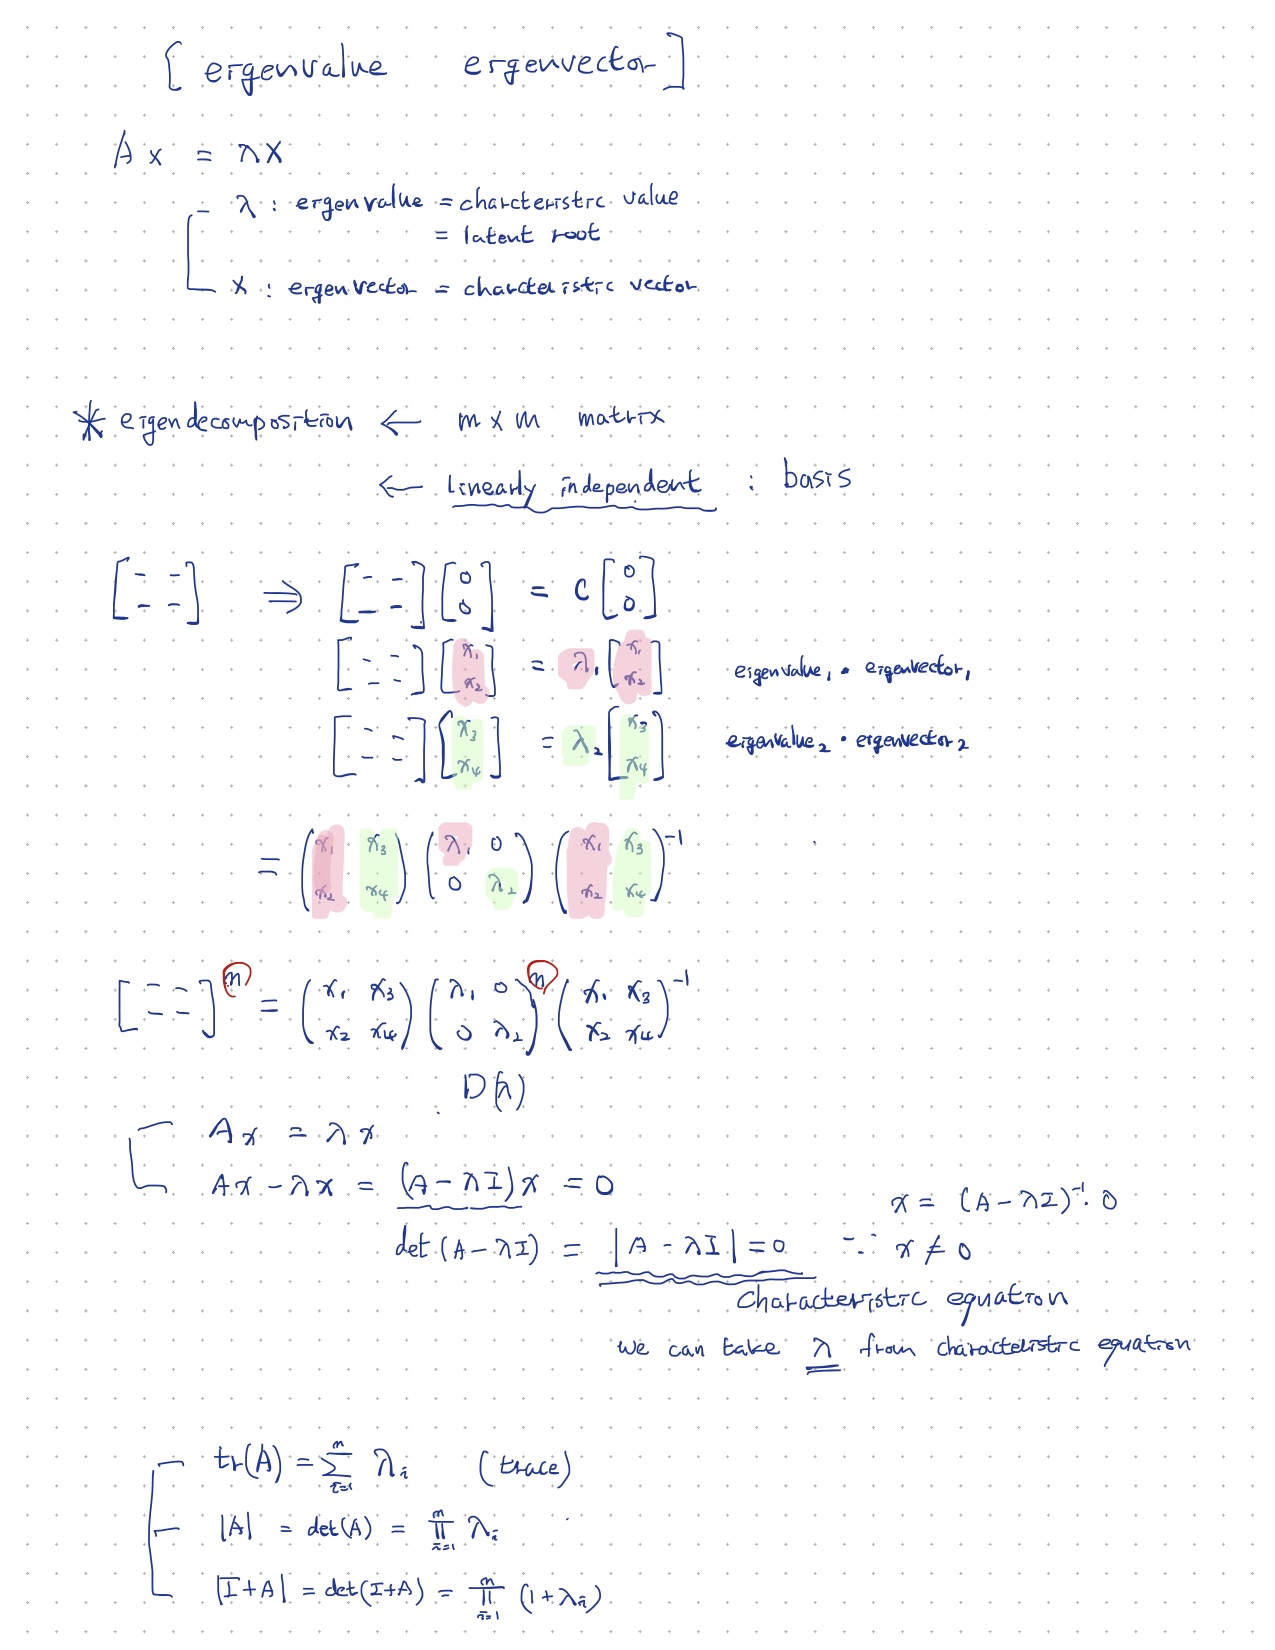 [ eigenvalue eigenvector ]
Ax = λx
λ : eigenvalue = charcteristic value
= latent root
x : eigenvector = charcteristic vector
* eigendecomposition ← m x m matrix
← linearly independent : basis
[ - - ; - - ] ⇒ [ - - ; - - ] [ 0 ; 0 ] = C [ 0 ; 0 ]
[ - - ; - - ] [ x₁ ; x₂ ] = λ₁ [ x₁ ; x₂ ] eigenvalue₁ • eigenvector₁
[ - - ; - - ] [ x₃ ; x₄ ] = λ₂ [ x₃ ; x₄ ] eigenvalue₂ • eigenvector₂
= ( x₁ x₃ ; x₂ x₄ ) ( λ₁ 0 ; 0 λ₂ ) ( x₁ x₃ ; x₂ x₄ )⁻¹
[ - - ; - - ]ⁿ = ( x₁ x₃ ; x₂ x₄ ) ( λ₁ 0 ; 0 λ₂ )ⁿ ( x₁ x₃ ; x₂ x₄ )⁻¹
D(λ)
Ax = λx
Ax - λx = (A - λI)x = 0
x = (A - λI)⁻¹ · 0
det (A - λI) = |A - λI| = 0 ∵ x ≠ 0
Characteristic equation
we can take λ from characteristic equation
tr(A) = ∑ᵢ₌₁ᵐ λᵢ (trace)
|A| = det(A) = ∏ᵢ₌₁ᵐ λᵢ
|I+A| = det(I+A) = ∏ᵢ₌₁ᵐ (1+λᵢ)